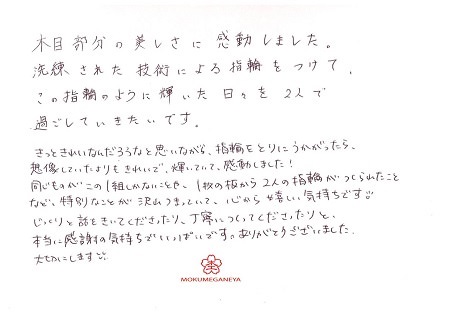 木目部分の美しさに感動しました。
洗練された技術による指輪をつけて、
この指輪のように輝いた日々を2人で
過ごしていきたいです。
きっときれいなんだろうなと思いながら、指輪をとりにうかがったら、
想像していたよりもきれいで、輝いていて、感動しました!
同じものがこの1組しかないことや、1枚の板から2人の指輪がつくられたこと
など、特別なことが沢山つまっていて、心から嬉しい気持ちです
じっくりと話をきいてくださったり、丁寧につくってくださったりと、
本当に感謝の気持ちでいっぱいです。ありがとうございました。
大切にします
MOKUMEGANEYA